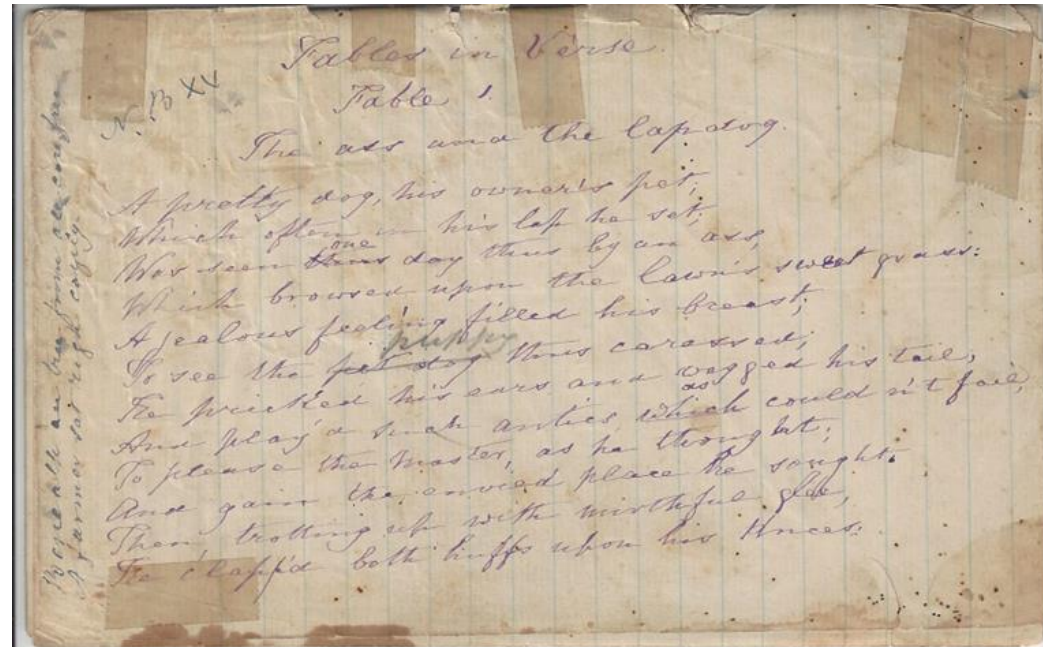 Fables in Verse.
N. B XX
Fable 1.
The ass and the lapdog.
A pretty dog, his owner's pet;
Which often in his lap he set;
Was seen thus one day thus by an ass,
Which browsed upon the lawn's sweet grass:
A jealous feeling filled his breast;
To see the pet dog puppy thus caressed;
He pricked his ears and wagged his tail,
And play'd such antics, which as could n't fail,
To please the Master, as he thought;
And gain the envied place he sought.
Then trotting up with mirthful glee,
He clapp'd both huffs upon his knees:
Beneath an tree from
A farmer sat right cozily